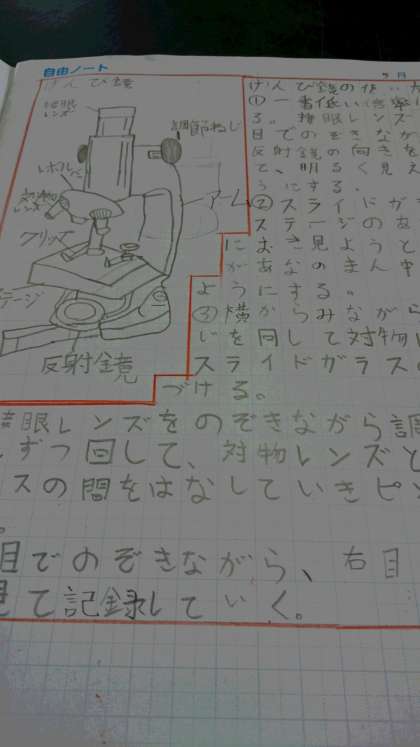 自由ノート
月
けんび鏡
接眼
レンズ
調節ねじ
レボルバー
対物
レンズ
アーム
クリップ
テージ
反射鏡
けんび鏡の使い方
①一番低い倍率
る。接眼レンズ
目でのぞきなが
反射鏡の向きを
て、明るく見え
うにする。
②スライドガ
ステージのあ
におき見ようと
があなのまん中
ようにする。
③横からみながら
じを回して対物
スライドガラスの
づける。
接眼レンズをのぞきながら調
しずつ回して、対物レンズと
スの間をはなしていきピン
。
目でのぞきながら、右目
見て記録していく。